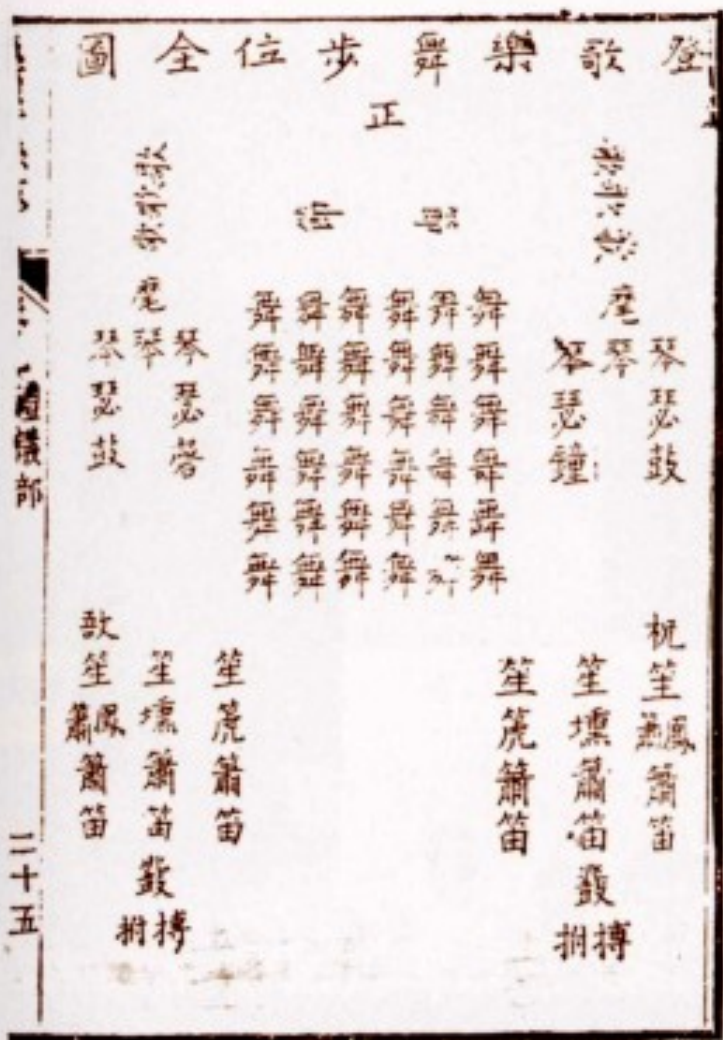 登歌樂舞步位全圖
正
麾
琴瑟鼓
琴
琴瑟鐘
舞舞舞舞舞舞
舞舞舞舞舞舞
舞舞舞舞舞舞
舞舞舞舞舞舞
舞舞舞舞舞
舞舞舞舞舞舞
歌歌歌
麾
琴瑟
琴
琴瑟鼓
柷笙鳳簫簫笛
笙壎簫笛鼗搏拊
笙箎簫笛
笙箎簫笛
笙壎簫笛鼗搏拊
敔笙鳳簫簫笛
禮儀部
二十五